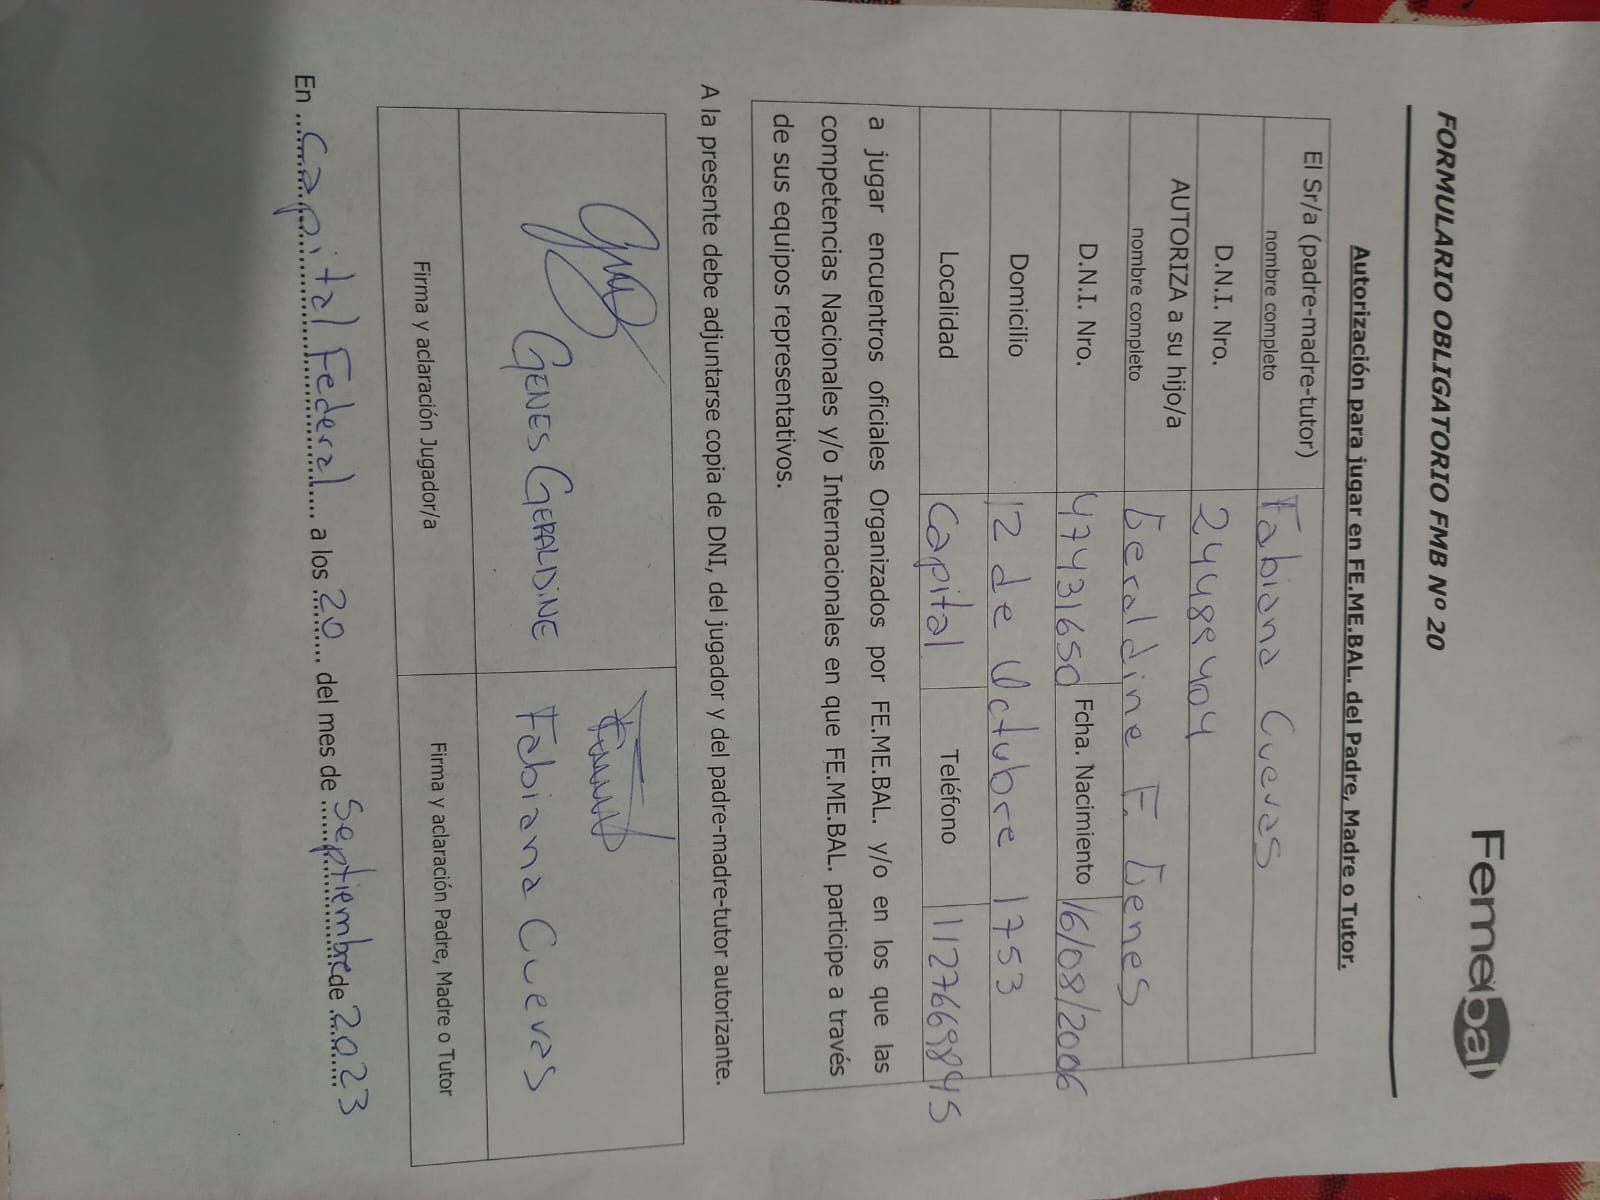 Femebal
FORMULARIO OBLIGATORIO FMB Nº 20
Autorización para jugar en FE.ME.BAL. del Padre, Madre o Tutor.
El Sr/a (padre-madre-tutor)
nombre completo
Fabiana Cuevas
D.N.I. Nro.
24489404
AUTORIZA a su hijo/a
nombre completo
Geraldine F. Genes
D.N.I. Nro.
47431650
Fcha. Nacimiento
16/08/2006
Domicilio
12 de Octubre 1753
Localidad
Capital
Teléfono
1127669845
a jugar encuentros oficiales Organizados por FE.ME.BAL. y/o en los que las
competencias Nacionales y/o Internacionales en que FE.ME.BAL. participe a través
de sus equipos representativos.
A la presente debe adjuntarse copia de DNI, del jugador y del padre-madre-tutor autorizante.
GENES GERALDINE
Fabiana Cuevas
Firma y aclaración Jugador/a
Firma y aclaración Padre, Madre o Tutor
En Capital Federal a los 20 del mes de Septiembre de 2023